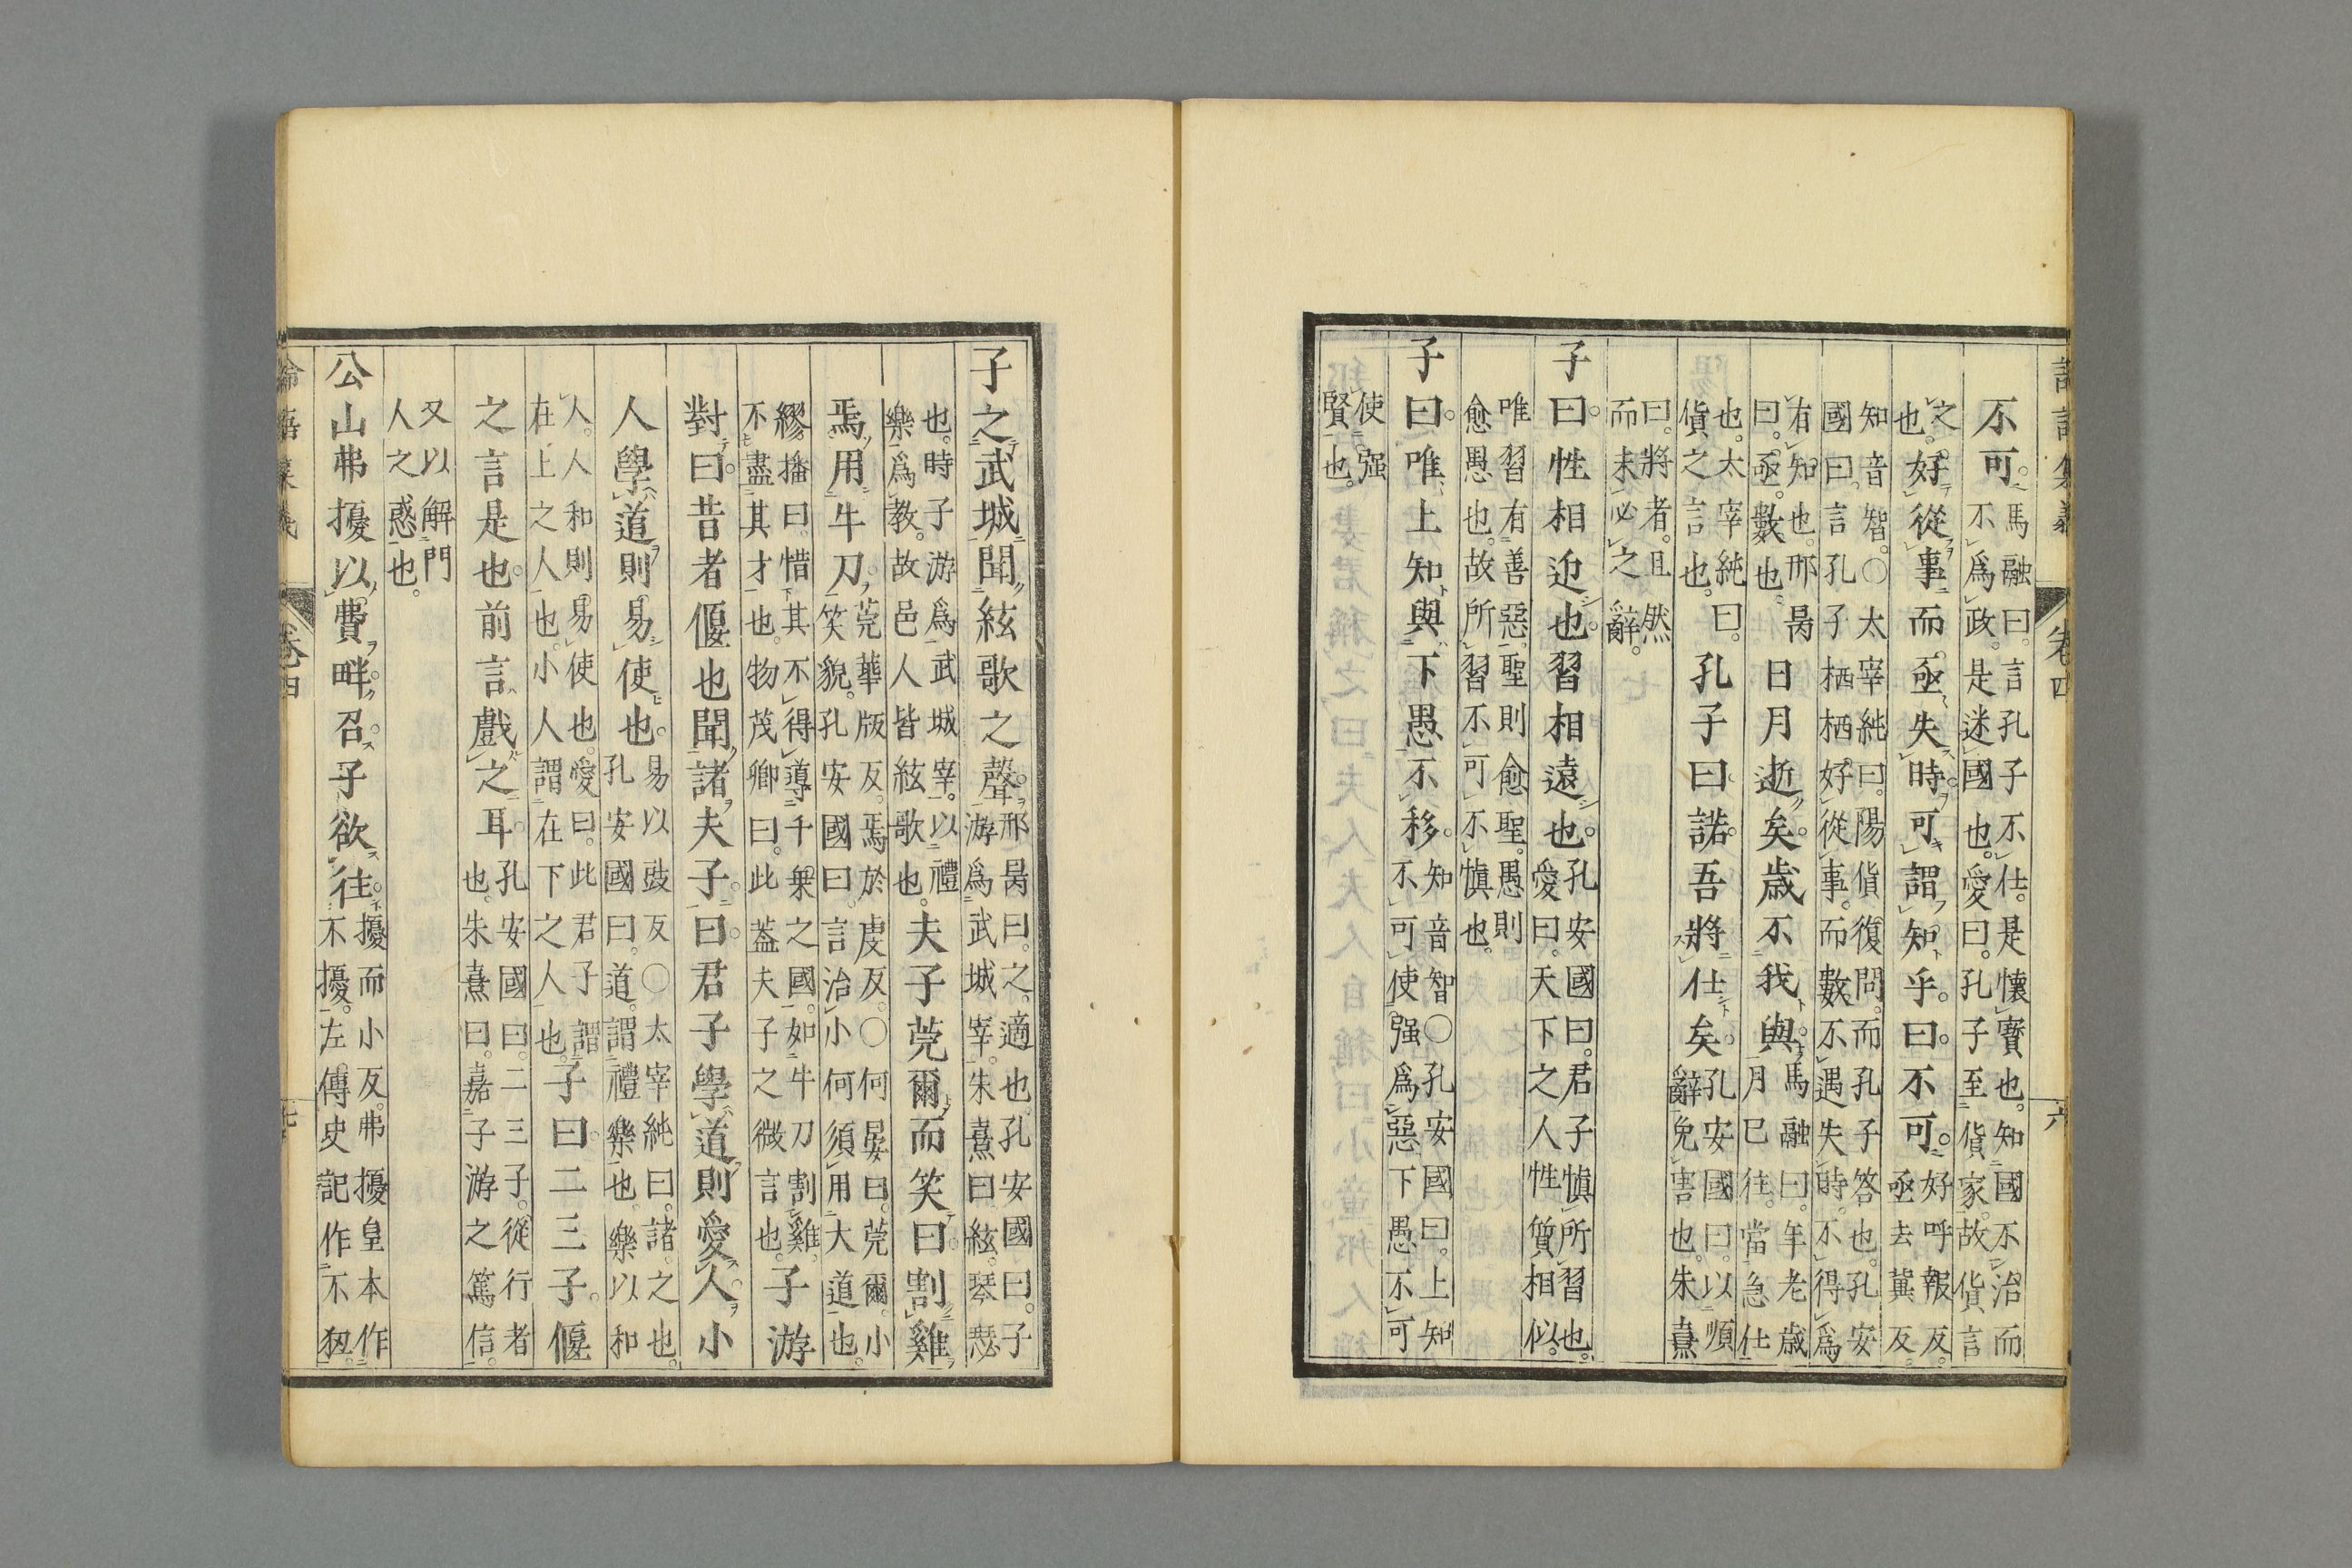 不可。馬融曰。言孔子不仕。是懷寳也。知國不治而
不爲政。是迷國也。愛曰。孔子至貨家。故貨言
之也。好從事而亟失時。可謂知乎。曰。不可。好呼報反。亟去冀反。
知音智。○太宰純曰。陽貨復問。而孔子答也。孔安
國曰。言孔子栖栖好從事。而數不遇失時。不得爲
有知也。邢昺
曰。亟。數也。日月逝矣。歳不我與。馬融曰。年老歳
月已往。當急仕
也。太宰純曰。
貨之言也。孔子曰。諾。吾將仕矣。孔安國曰。以順
辭免害也。朱熹
曰。將者。且然
而未必之辭。
子曰。性相近也。習相遠也。孔安國曰。君子愼所習也。
愛曰。天下之人性質相似。
唯習有善惡。聖則愈聖。愚則
愈愚也。故所習不可不愼也。
子曰。唯上知與下愚不移。知音智○孔安國曰。上知
不可使强爲惡下愚不可
使强
賢也。
卷四
六
子之武城。聞絃歌之聲。邢昺曰。之。適也孔安國曰。子
游爲武城宰。朱熹曰。絃。琴瑟
也。時子游爲武城宰。以禮
樂爲教。故邑人皆絃歌也。夫子莞爾而笑曰。割雞
焉用牛刀。莞華版反。焉於虔反。○何晏曰。莞爾。小
笑貌。孔安國曰。言治小何須用大道也。
繆播曰。惜其不得導千乗之國。如牛刀割雞。
不盡其才也。物茂卿曰。此蓋夫子之微言也。子游
對曰。昔者偃也聞諸夫子。曰。君子學道則愛人。小
人學道則易使也。易以豉反○太宰純曰。諸。之也。
孔安國曰。道。謂禮樂也。樂以和
人。人和則易使也。愛曰。此君子謂
在上之人也。小人謂在下之人也。子曰。二三子。偃
之言是也。前言戲之耳。孔安國曰。二三子。從行者
也。朱熹曰。嘉子游之篤信。
又以解門
人之惑也。
公山弗擾以費畔。召。子欲往。擾而小反。弗擾皇本作
不擾。左傳史記作不狃。
卷四
七